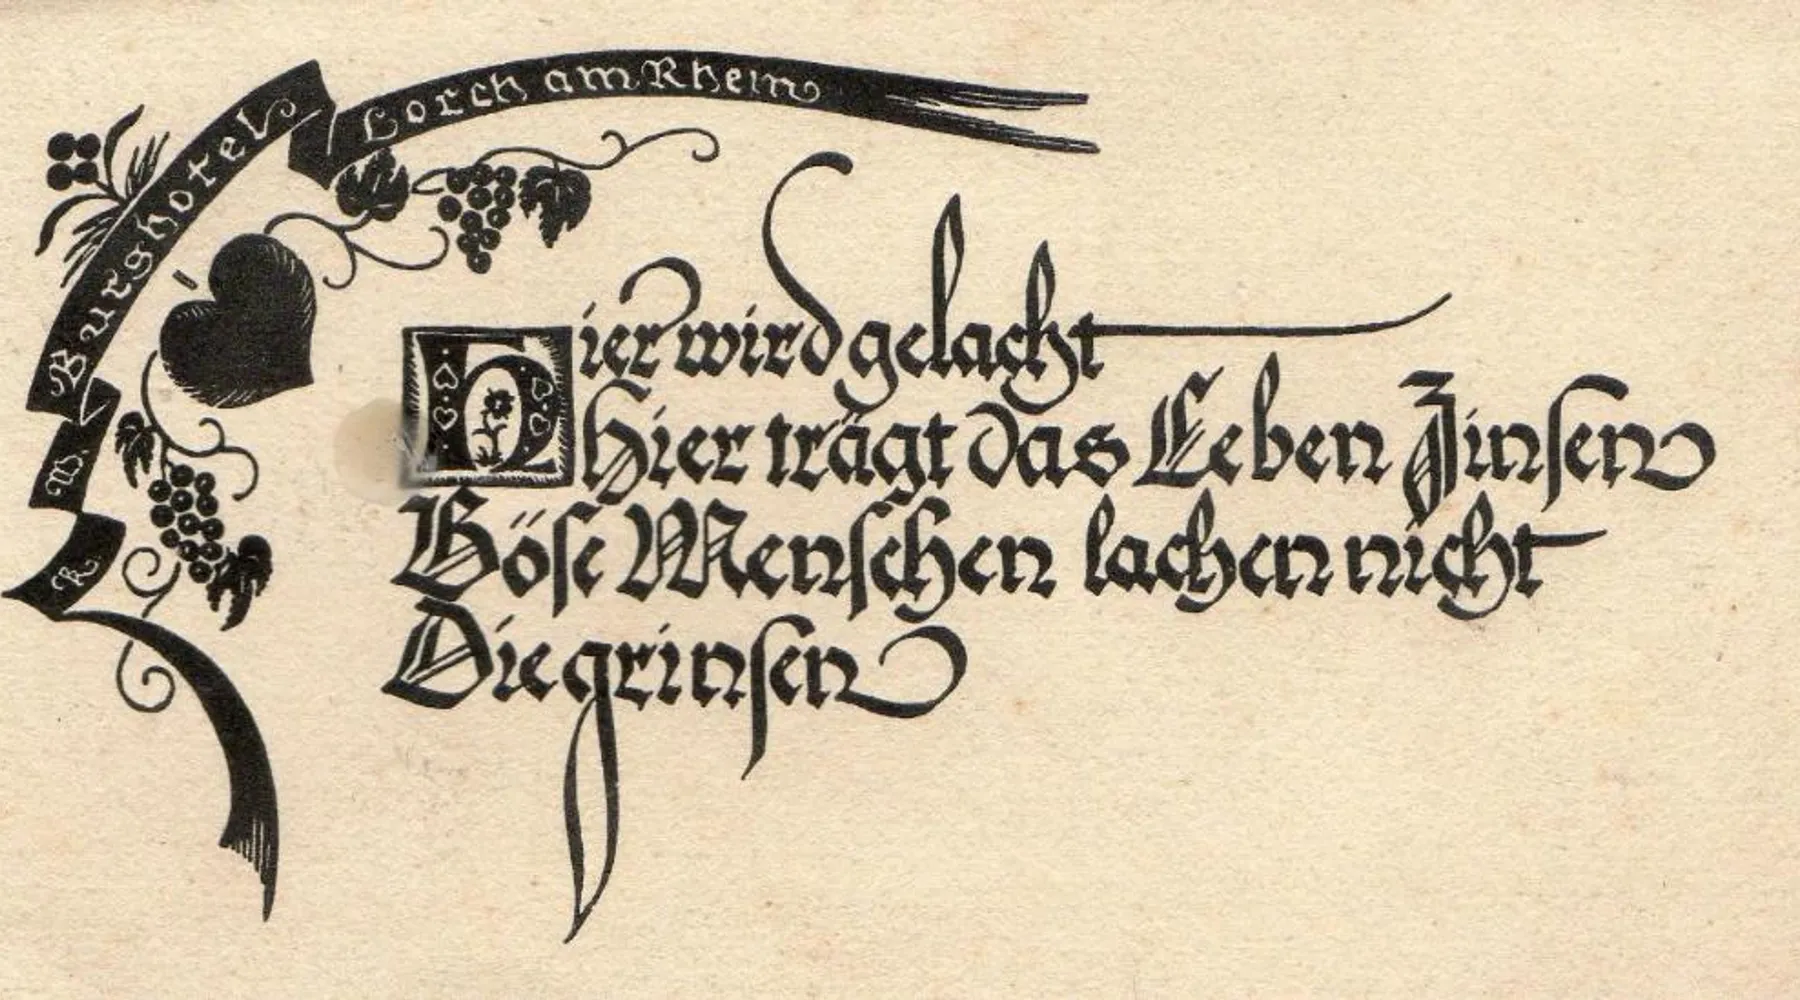 Burghotel Lorch am Rhein
W. R.
Hier wird gelacht
Hier trägt das Leben Zinsen
Böse Menschen lachen nicht
Die grinsen